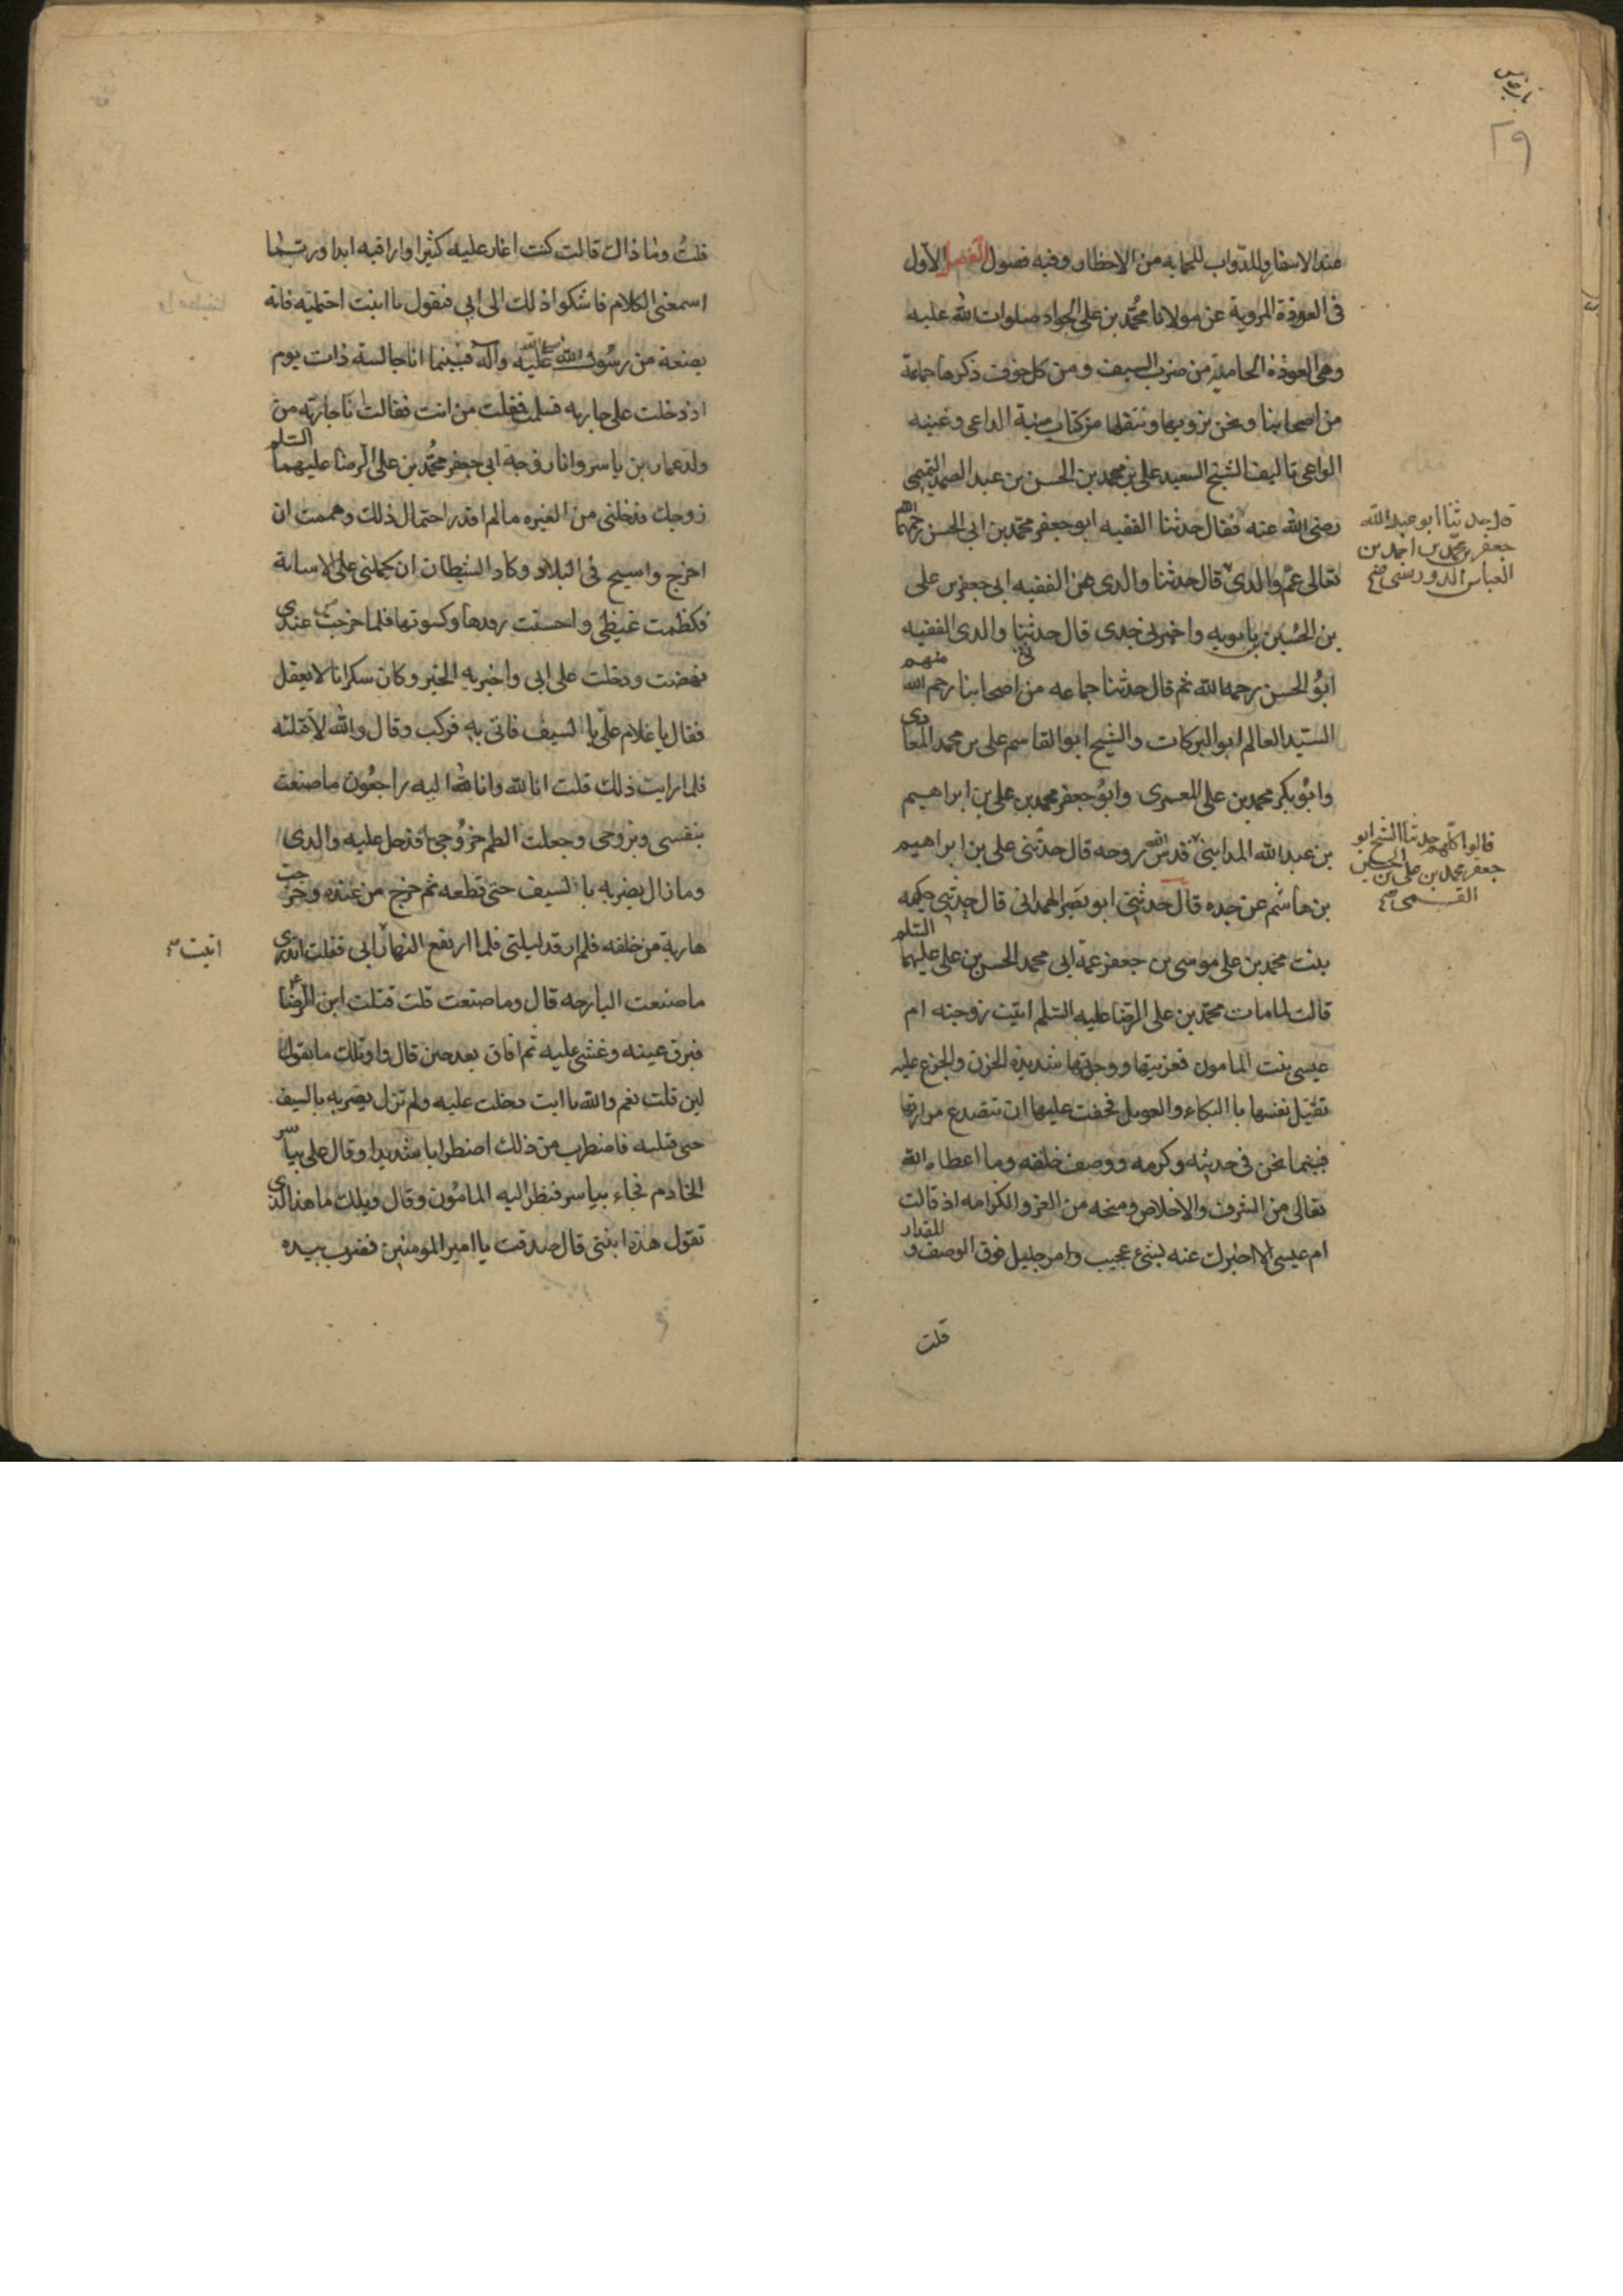 ٢٩
عند الاسفار وللدواب للحمايه من الاخطار وفيه فصول الفصل الاول
فى العوذة المروية عن مولانا محمد بن على الجواد صلوات الله عليه
وهى العوذة الحامية من ضرب السيف ومن كل خوف ذكرها جماعة
من اصحابنا ونحن نرويها وننقلها من كتاب منية الداعى وغنية
الواعى تاليف الشيخ السعيد على بن محمد بن الحسن بن عبد الصمد التميمى
رضى الله عنه فقال حدثنا الفقيه ابو جعفر محمد بن ابى الحسن رحمهما الله
تعالى عم والدى قال حدثنا والدى عن الفقيه ابى جعفر بن على
بن الحسين بن بابويه واخبرنى جدى قال حدثنا والدى الفقيه
ابو الحسن رحمه الله ثم قال حدثنا جماعه من اصحابنا رحمهم الله منهم
السيد العالم ابو البركات والشيخ ابو القاسم على بن محمد المعاذى
وابو بكر محمد بن على المعمرى وابو جعفر محمد بن على بن ابراهيم
بن عبد الله المداينى قدس الله روحه قال حدثنى على بن ابراهيم
بن هاشم عن جده قال حدثنى ابو نصر الهمدانى قال حدثتنى حكيمه
بنت محمد بن على موسى بن جعفر عمة ابى محمد الحسن بن على عليهما السلم
قالت لما مات محمد بن على الرضا عليه السلم اتيت زوجته ام
عيسى بنت المامون فعزيتها ووجدتها شديدة الحزن والجزع عليه
تقتل نفسها باالبكاء والعويل فخفت عليها ان تتصدع مرارتها
فبينما نحن فى حديثه وكرمه ووصف خلقه وما اعطاه الله
تعالى من الشرف والاخلاص ومنحه من العز والكرامه اذ قالت
ام عيسى الا اخبرك عنه بشىء عجيب وامر جليل فوق الوصف والمقدار
قلت
قال حدثنا ابو عبد الله
جعفر بن محمد بن احمد بن
العباس الدوريستى صح
قالوا كلهم حدثنا الشيخ ابو
جعفر محمد بن على بن الحسين
القمى صح
قلت وما ذاك قالت كنت اغار عليه كثيرا واراقبه ابدا وربما
اسمعنى الكلام فاشكو اذلك الى ابى فيقول يا ابنت احتمليه فانه
بضعة من رسول الله صلى الله عليه وآله فبينما انا جالسة ذات يوم
اذ دخلت على جاريه فسلمت فقلت من انت فقالت انا جاريه من
ولد عمار بن ياسر وانا زوجة ابى جعفر محمد بن على الرضا عليهما السلم
زوجك فدخلنى من الغيره ما لم اقدر احتمال ذلك وهممت ان
اخرج واسيح فى البلاد وكاد الشيطان ان يحملنى على الاساءة
فكظمت غيظى واحسنت رفدها وكسوتها فلما خرجت من عندى
نهضت ودخلت على ابى واخبرته الخبر وكان سكرانا لا يعقل
فقال يا غلام على باالسيف فاتى به فركب وقال والله لاقتلنه
فلما رايت ذلك قلت انا لله وانا اليه راجعون ما صنعت
بنفسى وبزوجى وجعلت الطم حر وجهى فدخل عليه والدى
وما زال يضربه باالسيف حتى قطعه ثم خرج من عنده وخرجت
هاربة من خلفه فلم ارقد ليلتى فلما ارتفع النهار ابى فقلت اتدرى
ما صنعت البارحه قال وما صنعت قلت قتلت ابن الرضا
فبرق عينه وغشى عليه ثم افاق بعد حين قال واويلك ما تقولى
لين قلت نعم والله يا ابت دخلت عليه ولم تزل تضربه بالسيف
حتى قتلته فاضطرب من ذلك اضطرابا شديدا وقال على بياسر
الخادم فجاء بياسر فنظر اليه المامون وقال ويلك ما هذا الذى
تقول هذه ابنتى قال صدقت يا امير المومنين فضرب بيده
اتيت